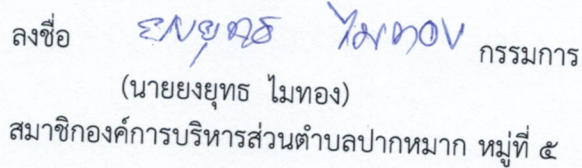 ลงชื่อ ยงยุทธ ไมทอง กรรมการ
(นายยงยุทธ ไมทอง)
สมาชิกองค์การบริหารส่วนตำบลปากหมาก หมู่ที่ ๕